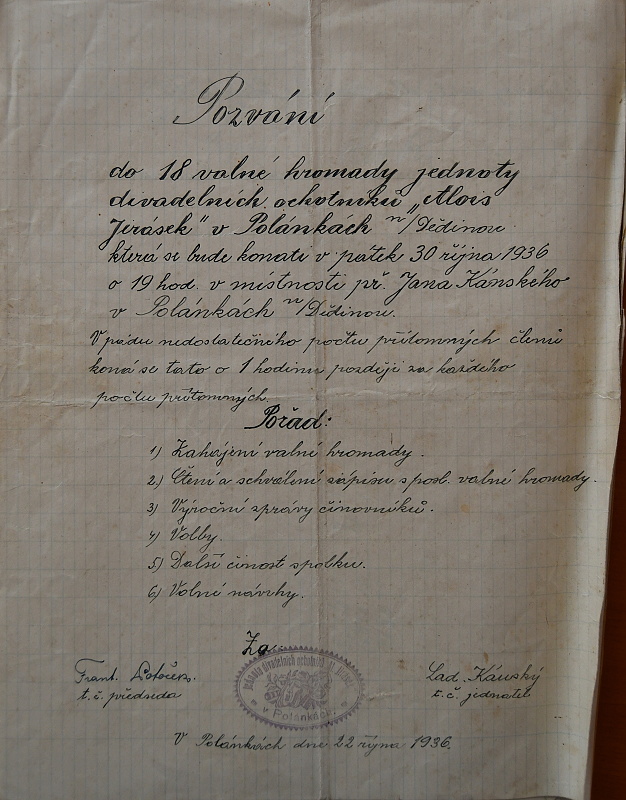 Pozvání
do 18 valné hromady jednoty
divadelních ochotníků „Alois
Jirásek" v Polánkách n/Dědinou
která se bude konati v pátek 30 října 1936
o 19 hod. v místnosti př. Jana Kánského
v Polánkách n/Dědinou.
V pádu nedostatečného počtu přítomných členů
koná se tato o 1 hodinu později za každého
počtu přítomných.
Pořad:
1) Zahájení valné hromady.
2) Čtení a schválení zápisu s posl. valné hromady.
3) Výroční zprávy činovníků.
4) Volby.
5) Další činost spolku.
6) Volné návrhy.
Za
Frant.
t. č. předseda
Lad. Kánský
t. č. jednatel
divadelních ochotníků
v Polánkách
V Polánkách dne 22 října 1936.